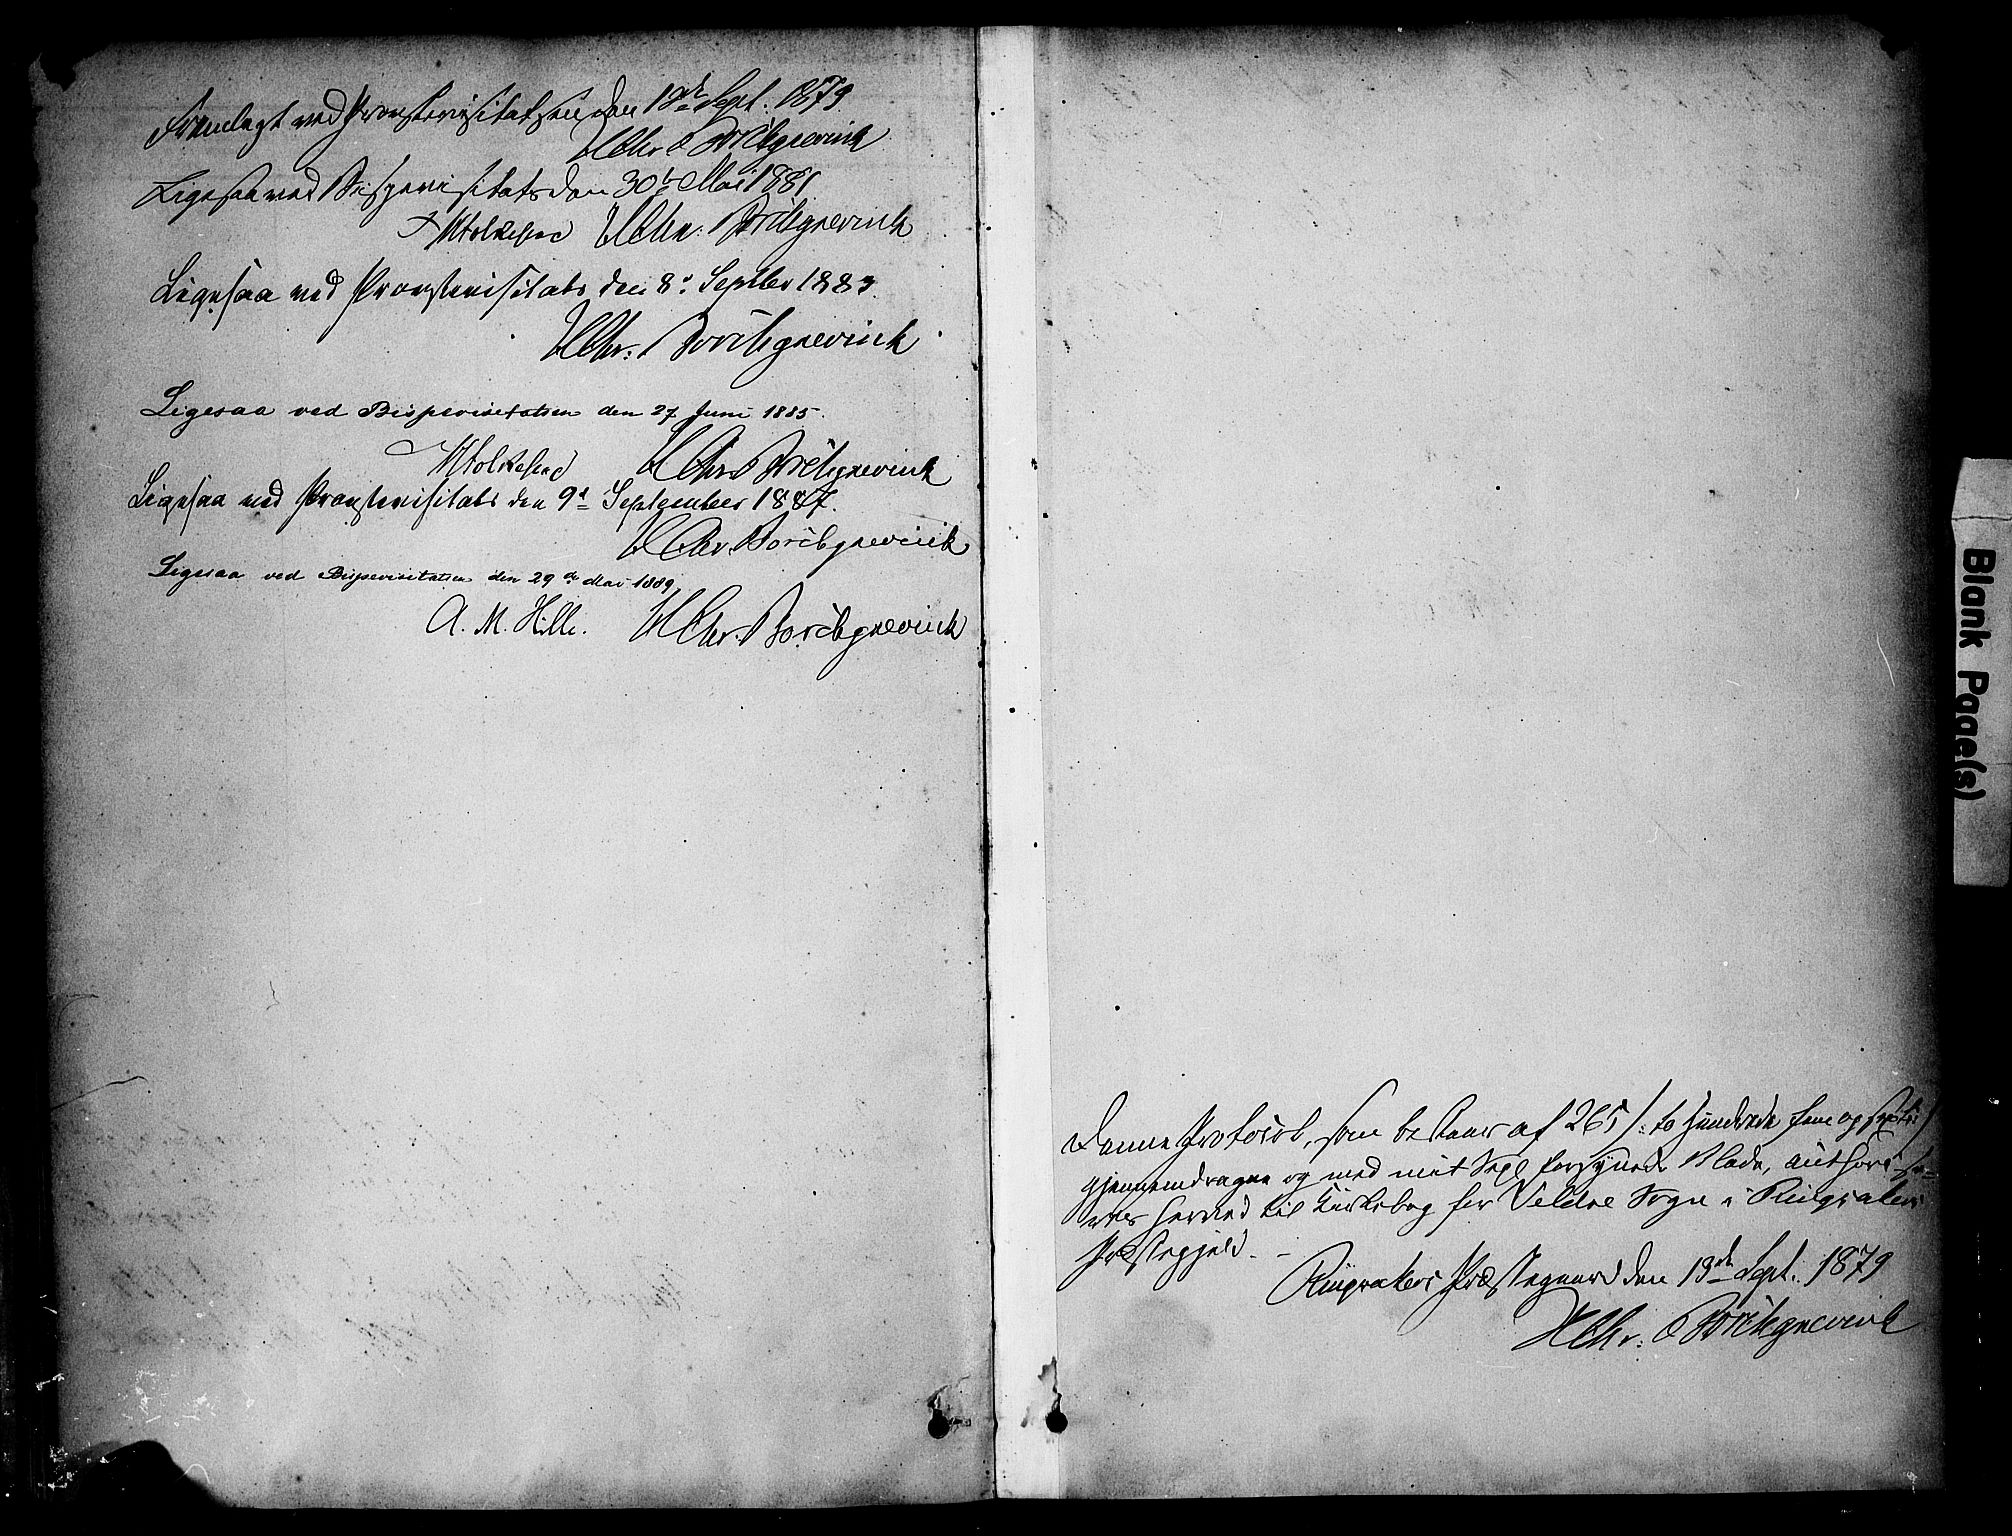 Fremlagt ved Provstevisitatsen den 13de Sept. 1879
HChr. Borchgrevink
Ligesaa ved Bispevisitats den 30te Mai 1881
Htolkefsed HChr. Borchgrevink
Ligesaa ved Provstevisitats den 8de Septber 1883.
HChr. Borchgrevink
Ligesaa ved Bispevisitatsen den 27 Juni 1885.
HChr. Borchgrevink
Ligesaa ved Provstevisitats den 9d September 1887.
HChr. Borchgrevink
Ligesaa ved Bispevisitatsen den 29de Mai 1889,
A. M. Hille. HChr. Borchgrevink
Denne Protocol, som bestaaer af 265 /: to hundrede fem og sexti /
gjennemdragne og med mit Segl forsynede Blade, authorise-
res herved til Kirkebog for Veldre Sogn i Ringsakers
Præstegjeld. -
Ringsakers Præstegaard den 13de Sept. 1879
HChr. Borchgrevink
Blank Page(s)